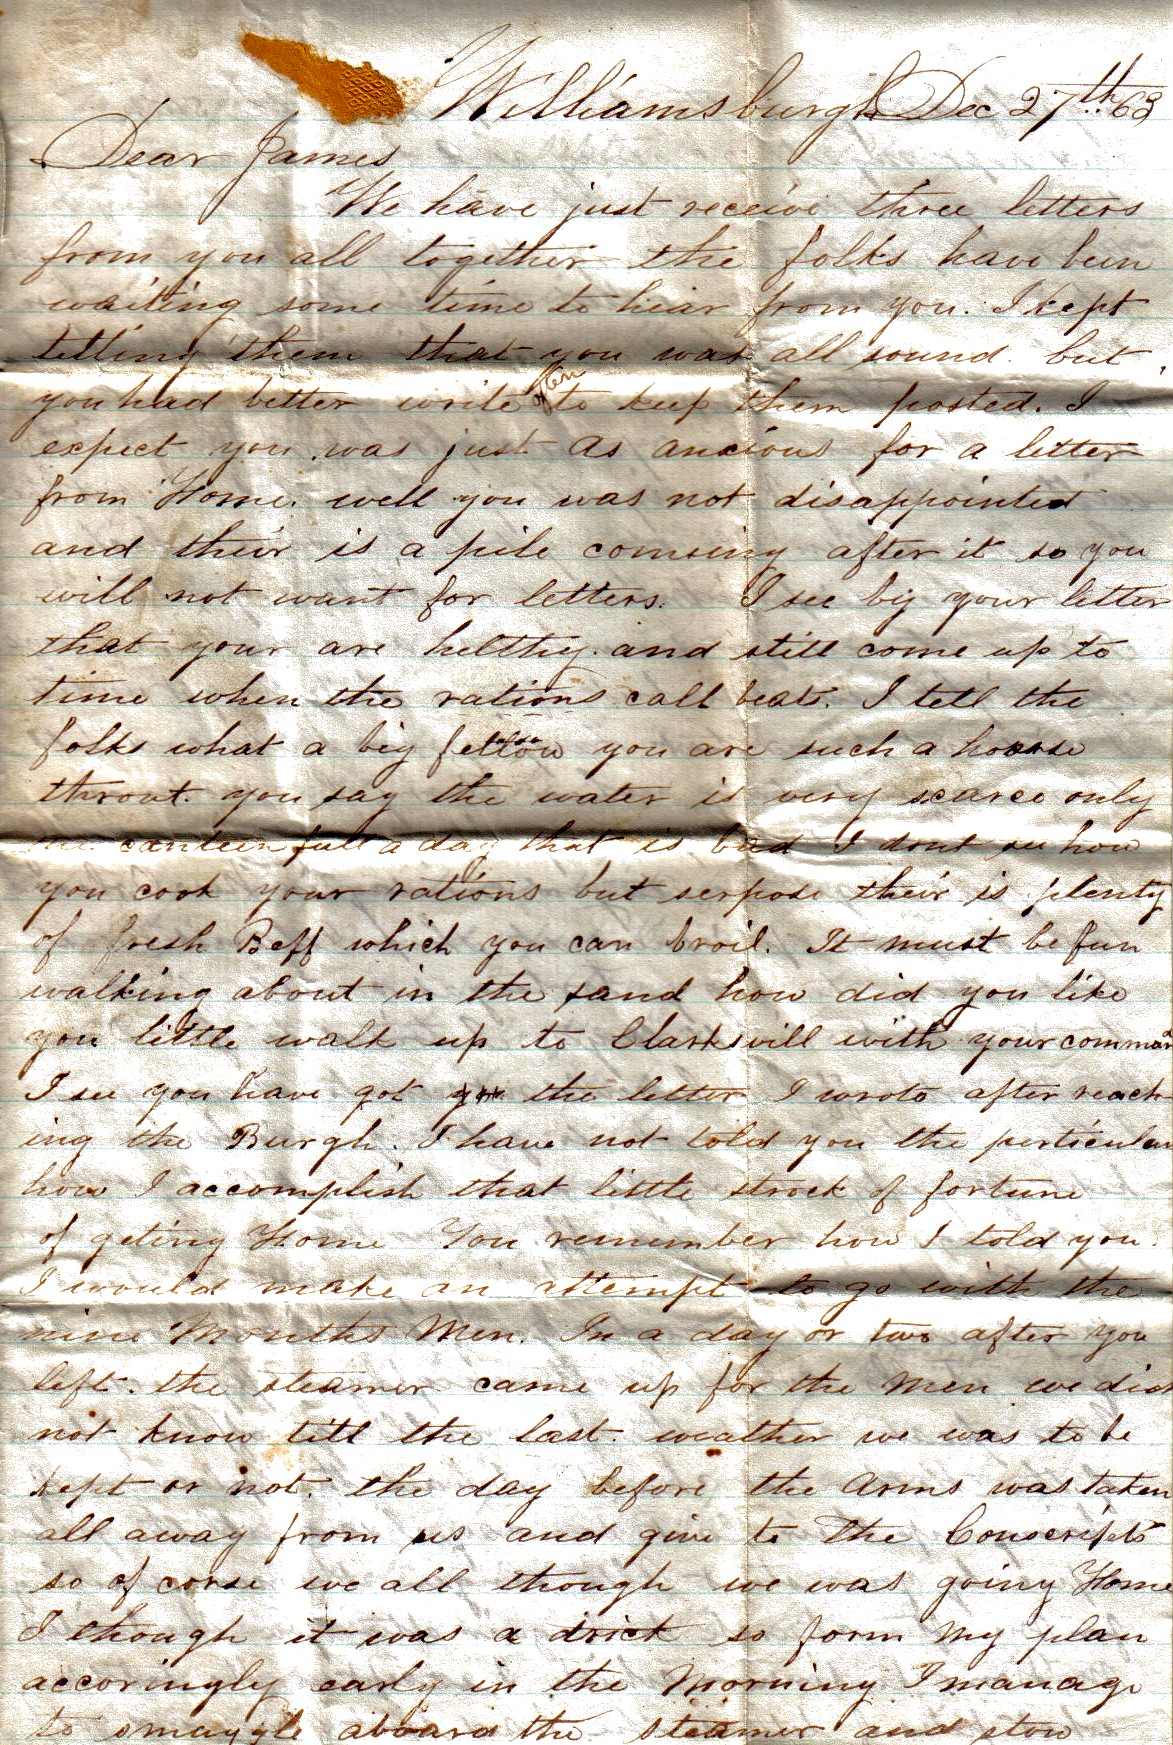 Williamsburgh Dec 27th 63
Dear James
We have just receive three letters
from you all together the folks have been
waiting some time to hear from you. I kept
telling them that you was all sound. but
you had better write often to keep them posted. I
expect you was just as ancious for a letter
from Home. well you was not disappointed
and their is a pile comeing after it so you
will not want for letters. I see by your letter
that your are helthy. and still come up to
time when the rations call beats. I tell the
folks what a big fellow you are such a hoarse
throat. you say the water is very scarce only
canteen full a day that is bad I dont see how
you cook your rations but serpose their is plenty
of fresh Beff which you can broil. It must be fun
walking about in the sand how did you like
you little walk up to Clarksvill with your comman
I see you have got the letter I wrote after reach
ing the Burgh. I have not told you the perticular
how I accomplish that little strock of fortune
of geting Home You remember how I told you.
I would make an attempt to go with the
nine Months Men. In a day or two after you
left. the steamer came up for the Men we did
not know till the last. weather we was to be
kept or not. the day before the Arms was taken
all away from us and give to the Conscripts
so of corse we all though we was going Home
I though it was a drick so form my plan
accoringly early in the Morning I manage
to smuggle aboard the steamer and stow